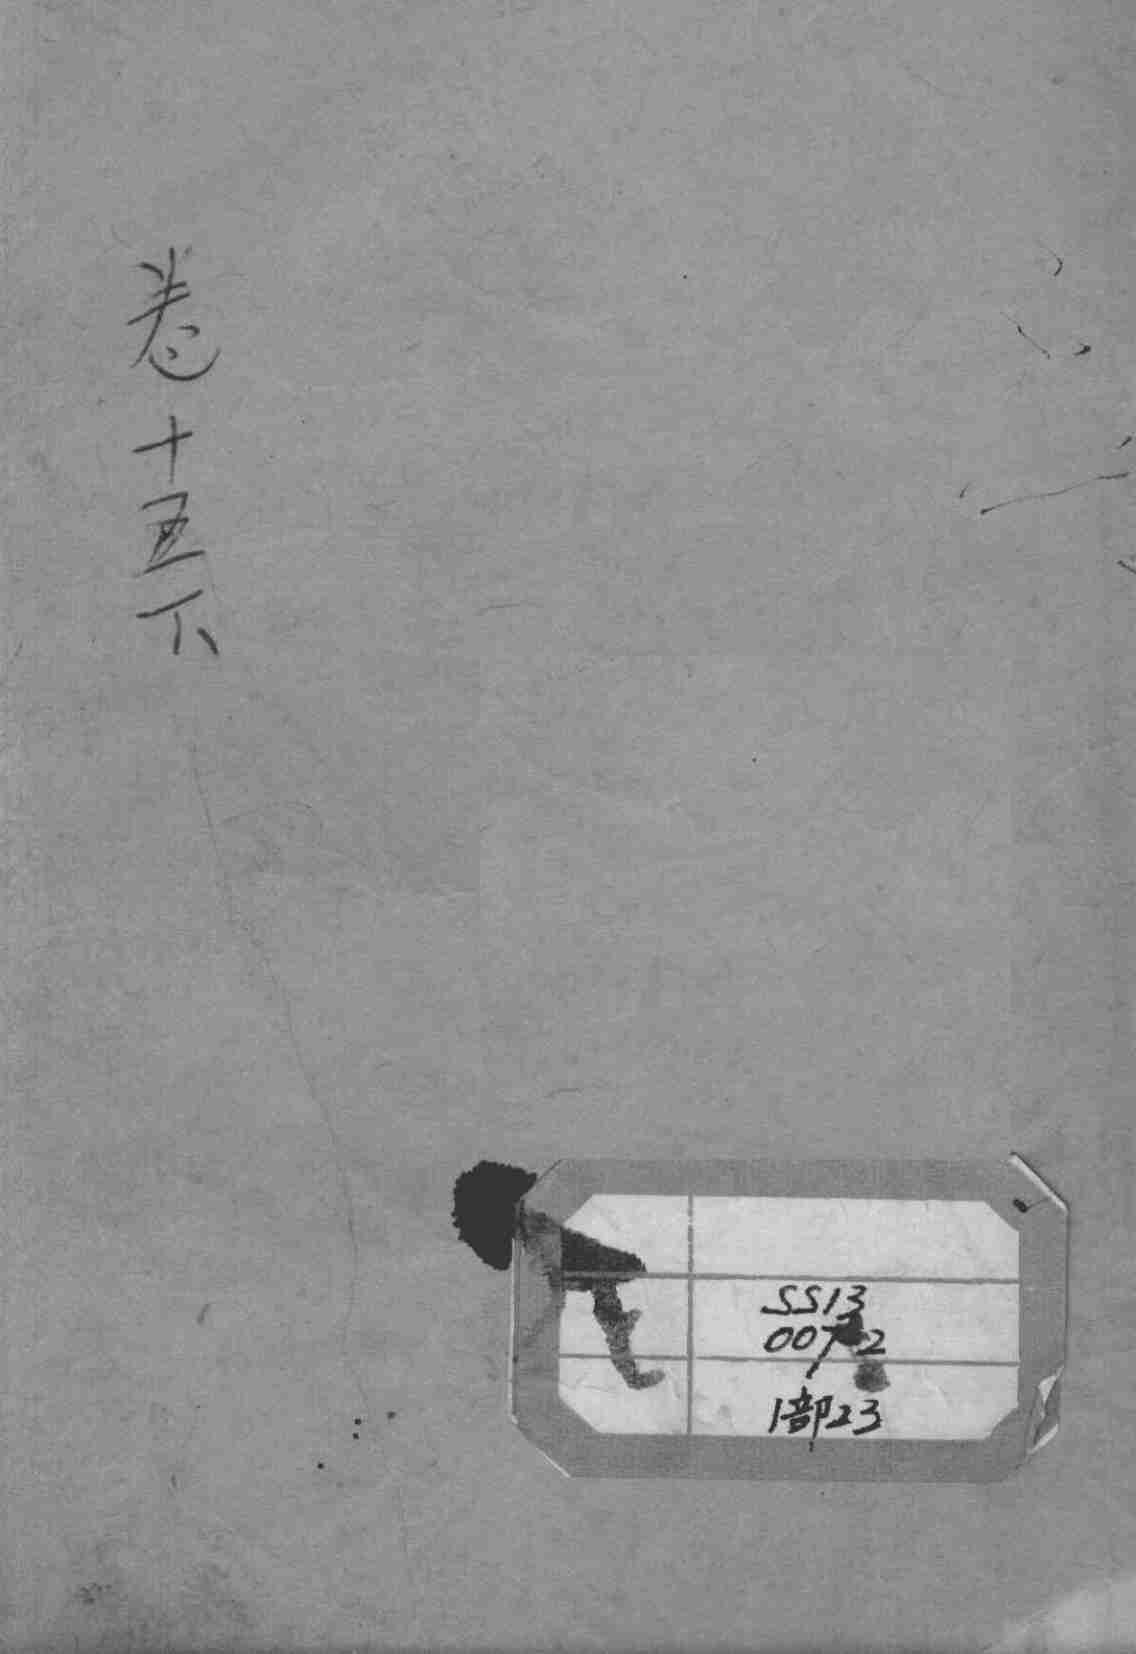 卷十五下
SS13
0072
1部23